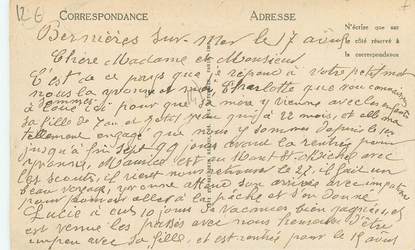 126
CORRESPONDANCE ADRESSE
N'écrire que sur
le côté réservé à
la correspondance
Bernières sur-Mer le 17 août
Chère Madame et Monsieur
C'est de ce pays que je réponds à votre petit mot
nous la Yvonne et moi Charlotte que vous connaissez
sa fille de 7 an et Jean qui a 22 mois, et elle m'a
tellement engagé que nous y sommes depuis le
jusqu'à fin Sept jours avant la rentrée pour
Yvonne, Maurice est au Mont St Michel avec
les scouts, il vient nous retrouver le 22, il fait un
beau voyage, Yvonne attend son arrivée avec impatience
pour pouvoir aller à la pêche
Lucie a eu 10 jours de vacances bien gagnées, et
est venue les passer avec nous heureuse d'être
un peu avec sa fille, et est rentrée pour le 15 août